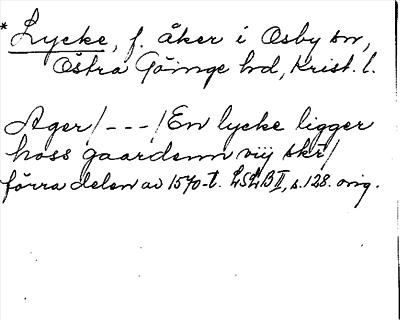 * Lycke, f. åker i Osby sn,
Östra Göinge hd, Krist. l.
Ager/ - - - /En lycke ligger
hoss gaardenn viij skr/
förra delen av 1570-t. LSLB II, s. 128. orig.